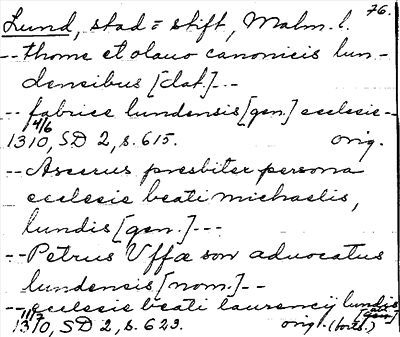 76.
Lund, stad = stift, Malm. l.
-- thome et olauo canonicis lun-
densibus [dat.]--
-- fabrice lundensis [gen.] ecclesie--
4/6
1310, SD 2, s. 615. orig.
-- Ascerus presbiter persona
ecclesie beati michaelis,
lundis [gen.] ---
-- Petrus Uffæ son aduocatus
lundensis [nom.] --
-- ecclesie beati laurencij lundis
[gen.]
11/7
1310, SD 2, s. 623. orig. (forts.)